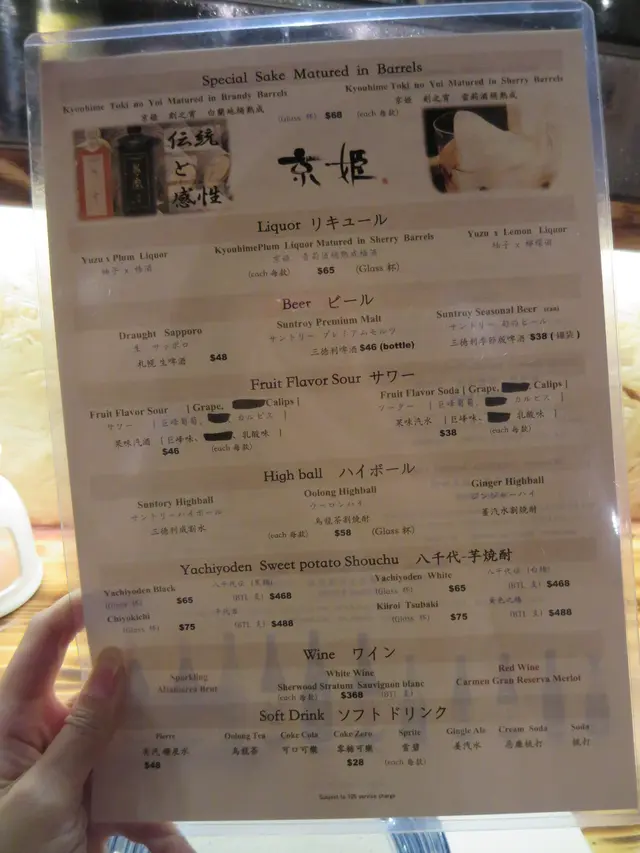 Special Sake Matured in Barrels
Kyouhime Toki no Yoi Matured in Brandy Barrels
Kyouhime Toki no Yoi Matured in Sherry Barrels
京姫 刻之宵 白蘭地桶熟成
(Glass 杯) $68 (each 每款)
京姫 刻之宵 雪莉酒桶熟成
伝統
と
感性
京姫
Liquor リキュール
Yuzu x Plum Liquor
柚子 x 梅酒
KyouhimePlum Liquor Matured in Sherry Barrels
京姫 雪莉酒桶熟成梅酒
(each 每款) $65 (Glass 杯)
Yuzu x Lemon Liquor
柚子 x 檸檬酒
Beer ビール
Draught Sapporo
生 サッポロ
札幌 生啤酒 $48
Suntroy Premium Malt
サントリー プレミアムモルツ
三德利啤酒 $46 (bottle)
Suntroy Seasonal Beer
サントリー
三德利季節版啤酒 $38 ( 罐裝 )
Fruit Flavor Sour サワー
Fruit Flavor Sour [ Grape, Calips ]
サワー [ 巨峰葡萄、 カルピス ]
果味汽酒 [ 巨峰味、 、乳酸味 ]
$46 (each 每款)
Fruit Flavor Soda [ Grape, Calips ]
ソーダー [ 巨峰葡萄、 カルピス ]
果味汽水 [ 巨峰味、 、乳酸味 ]
$38 (each 每款)
High ball ハイボール
Suntory Highball
サントリーハイボール
三德利威割水
Oolong Highball
ウーロンハイ
烏龍茶割燒酎
(each 每款) $58 (Glass 杯)
Ginger Highball
ジンジャーハイ
薑汽水割燒酎
Yachiyoden Sweet potato Shouchu 八千代-芋焼酎
Yachiyoden Black
(Glass 杯) $65 (BTL 支) $468
Chiyokichi 千代吉
(Glass 杯) $75 (BTL 支) $488
Yachiyoden White
(Glass 杯) $65 (BTL 支) $468
Kiiroi Tsubaki
(Glass 杯) $75 (BTL 支) $488
Wine ワイン
Sparkling
Brut
White Wine
Sherwood Stratum Sauvignon blanc
(each 每款) $368 (BTL 支)
Red Wine
Carmen Gran Reserva Merlot
Soft Drink ソフトドリンク
Pierre
有汽礦泉水
$48
Oolong Tea
烏龍茶
Coke Cola
可口可樂
Coke Zero
零糖可樂
Sprite
雪碧
Gingle Ale
薑汽水
Cream Soda
忌廉梳打
Soda
梳打
$28 (each 每款)
Subject to 10% service charge